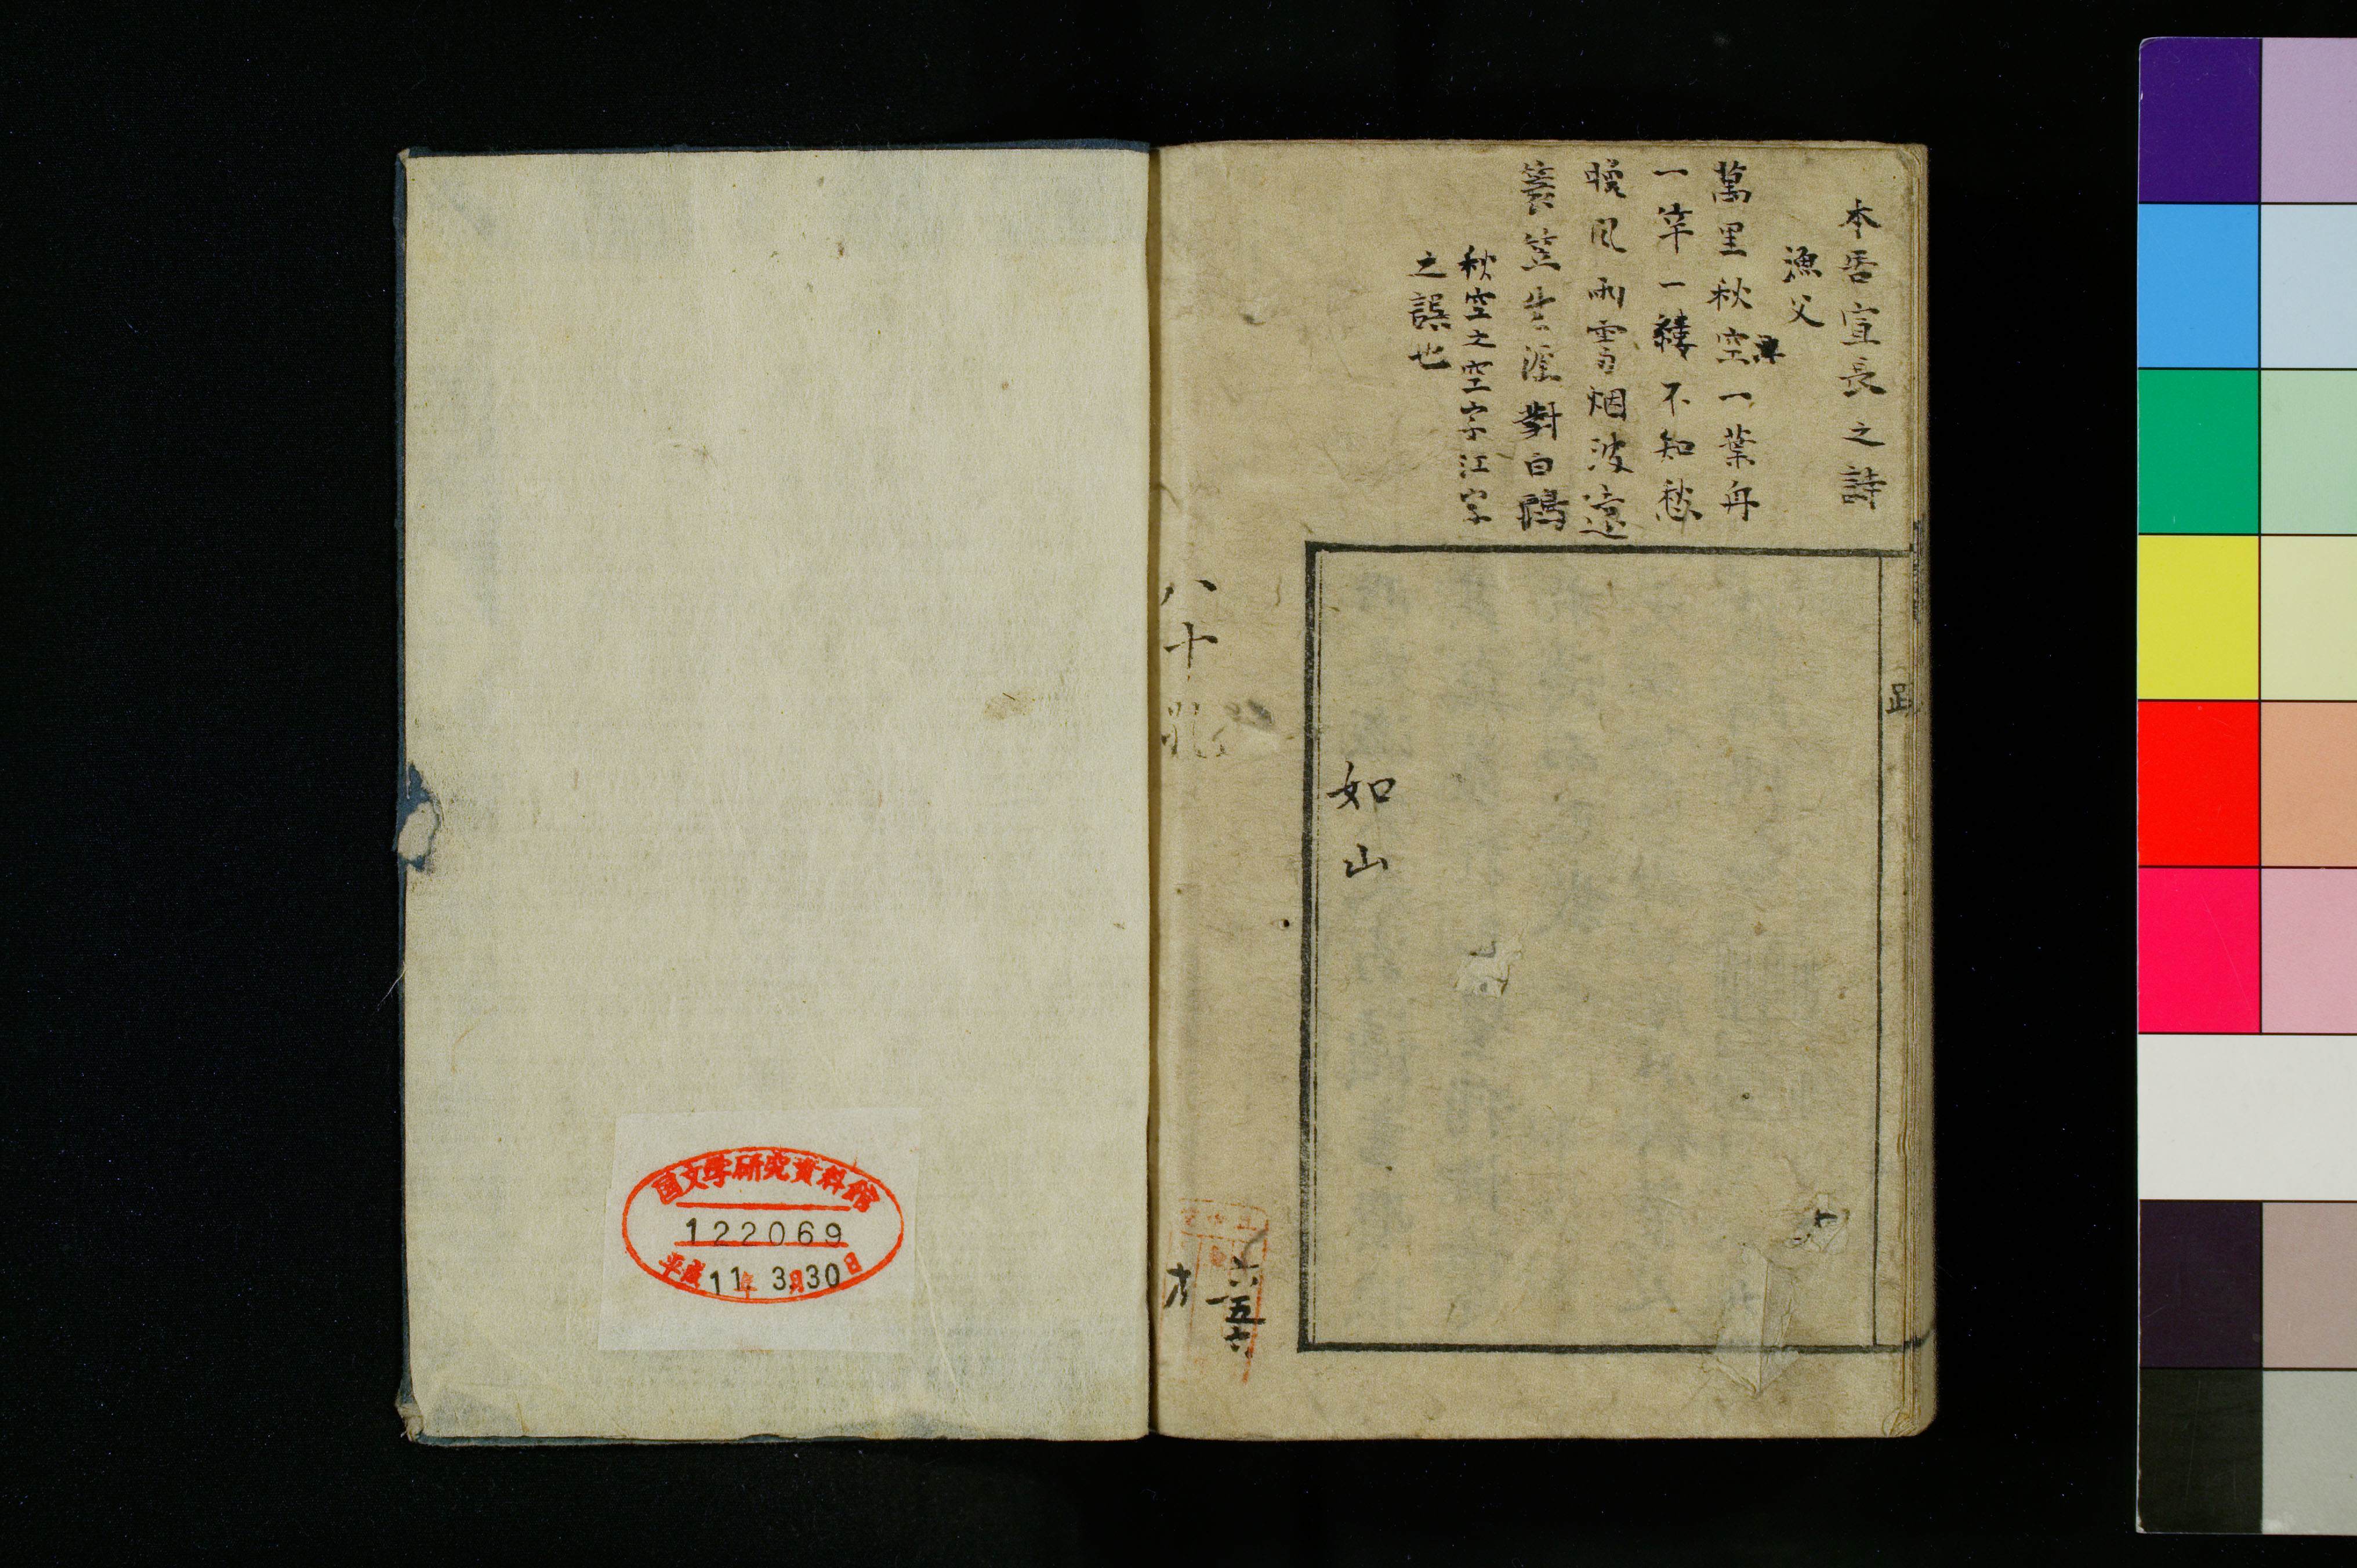 本居宣長之詩
漁父
萬里秋空一葉舟
一竿一縷不知愁
晩風雨雪烟波遠
簑笠生涯對白鷗
秋空之空字江字
之誤也
跋
如山
八十
六五六
国文学研究資料館
122069
平成11年3月30日